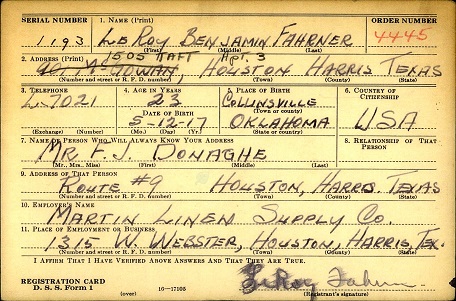 SERIAL NUMBER 1. NAME (Print) ORDER NUMBER
1193 LE ROY BENJAMIN FAHRNER 4445
(First) (Middle) (Last)
2. ADDRESS (Print) 1505 TAFT APT. 3
McGOWAN, HOUSTON HARRIS TEXAS
(Number and street or R. F. D. number) (Town) (County) (State)
3. TELEPHONE 4. AGE IN YEARS 5. PLACE OF BIRTH 6. COUNTRY OF CITIZENSHIP
L-7021 23 COLLINSVILLE
(Town or county)
DATE OF BIRTH
5-12-17 OKLAHOMA USA
(Exchange) (Number) (Mo.) (Day) (Yr.) (State or country)
7. NAME OF PERSON WHO WILL ALWAYS KNOW YOUR ADDRESS 8. RELATIONSHIP OF THAT PERSON
MR. F. J. DONAGHE
(Mr., Mrs., Miss) (First) (Middle) (Last)
9. ADDRESS OF THAT PERSON
ROUTE #9 HOUSTON, HARRIS, TEXAS
(Number and street or R. F. D. number) (Town) (County) (State)
10. EMPLOYER'S NAME
MARTIN LINEN SUPPLY CO.
11. PLACE OF EMPLOYMENT OR BUSINESS
1315 W. WEBSTER, HOUSTON, HARRIS, TEX.
(Number and street or R. F. D. number) (Town) (County) (State)
I AFFIRM THAT I HAVE VERIFIED ABOVE ANSWERS AND THAT THEY ARE TRUE.
REGISTRATION CARD
D. S. S. Form 1 (over) 16-17105 LeRoy Fahrner
(Registrant's signature)